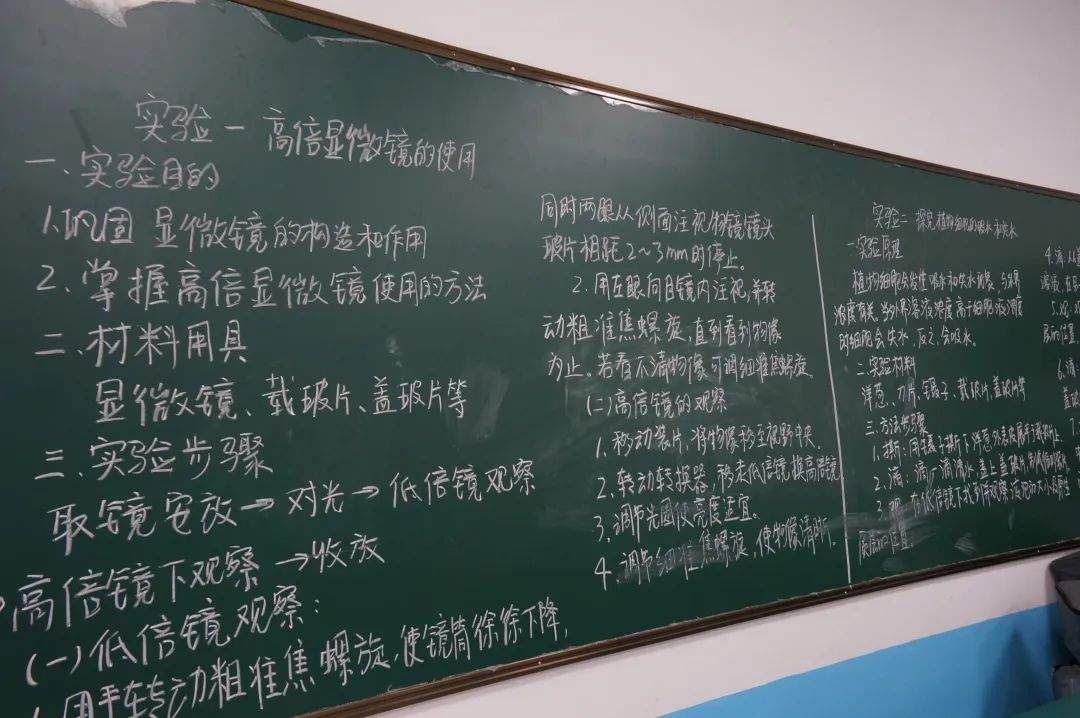 实验一 高倍显微镜的使用
一.实验目的
1.巩固 显微镜的构造和作用
2.掌握高倍显微镜使用的方法
二.材料用具
显微镜、载玻片、盖玻片等
三.实验步骤
取镜安放→对光→低倍镜观察
高倍镜下观察→收放
(一)低倍镜观察:
1.用手转动粗准焦螺旋,使镜筒徐徐下降,
同时两眼从侧面注视物镜镜头
玻片相距2~3mm时停止。
2.用左眼向目镜内注视,并转
动粗准焦螺旋,直到看到物像
为止。若看不清物像可调细准焦螺旋
(二)高倍镜的观察
1.移动装片,将物像移至视野中央.
2.转动转换器,移走低倍镜,换高倍镜
3.调节光圈使亮度适宜。
4.调节细准焦螺旋,使物像清晰.
实验二 探究植物细胞的吸水和失水
一实验原理
植物细胞会发生吸水和失水现象,与外界
浓度有关,当外界溶液浓度高于细胞液浓度
时细胞会失水,反之,会吸水。
二.实验材料
洋葱、刀片、镊子、载玻片、盖玻片等
三.方法步骤
1.撕:用镊子撕下洋葱外表皮展平于载玻片上
2.滴:滴一滴清水,盖上盖玻片,制成临时装片
3.观:在低倍镜下找到并观察液泡的大小
原生质层的位置
4.滴:从
溶液,在
5.观:
层的位置.
6.滴:
盖玻